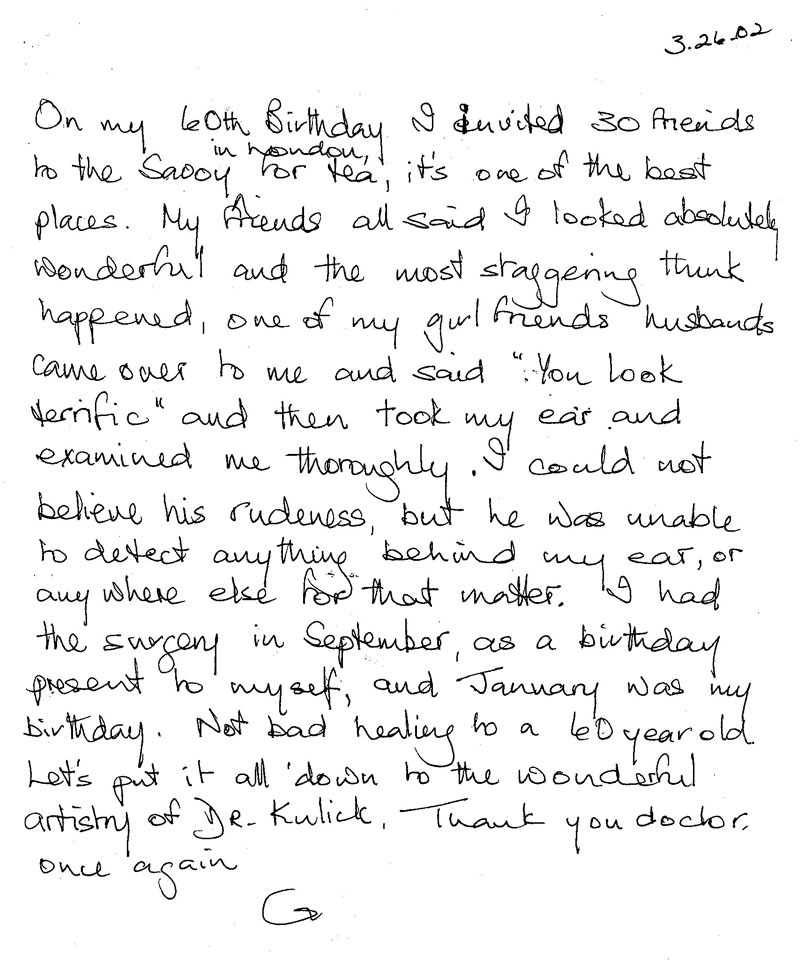 3.26.02
On my 60th Birthday I invited 30 friends
in London,
to the Savoy for tea, it's one of the best
places. My friends all said I looked absolutely
wonderful and the most staggering think
happened, one of my girl friends husbands
came over to me and said "You look
terrific" and then took my ear and
examined me thoroughly. I could not
believe his rudeness, but he was unable
to detect anything behind my ear, or
any where else for that matter. I had
the surgery in September, as a birthday
present to myself, and January was my
birthday. Not bad healing to a 60 year old.
Let's put it all down to the wonderful
artistry of DR. Kulick. Thank you doctor.
once again
G